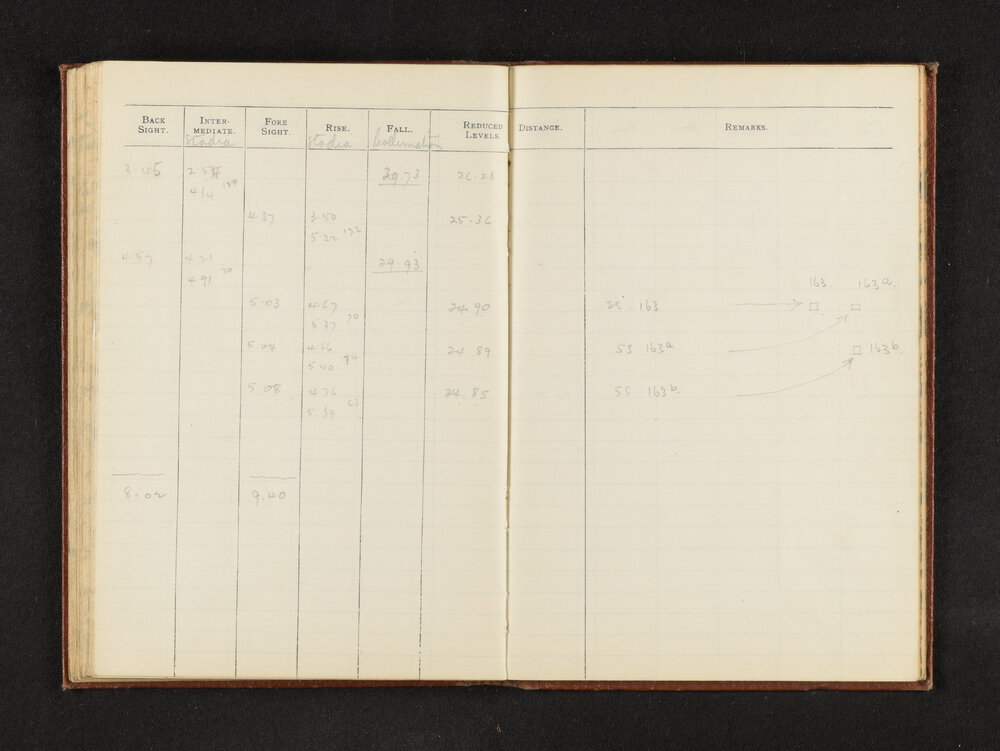 BACK SIGHT. INTER-MEDIATE. FORE SIGHT. RISE. FALL. REDUCED LEVELS. DISTANCE. REMARKS.
Stadia Stadia Collimation
3.45 2.54 29.73 26.28
434 180
4.37 3.50 25.36
5.22 172
4.57 4.21 29.93
4.91 70
163. 163a.
5.03 4.67 24.90 SS. 163
5.37 70
5.04 4.66 24.89 SS 163a 163b.
5.40 74
5.08 4.76 24.85 SS 163b.
5.39 63
8.02 9.40